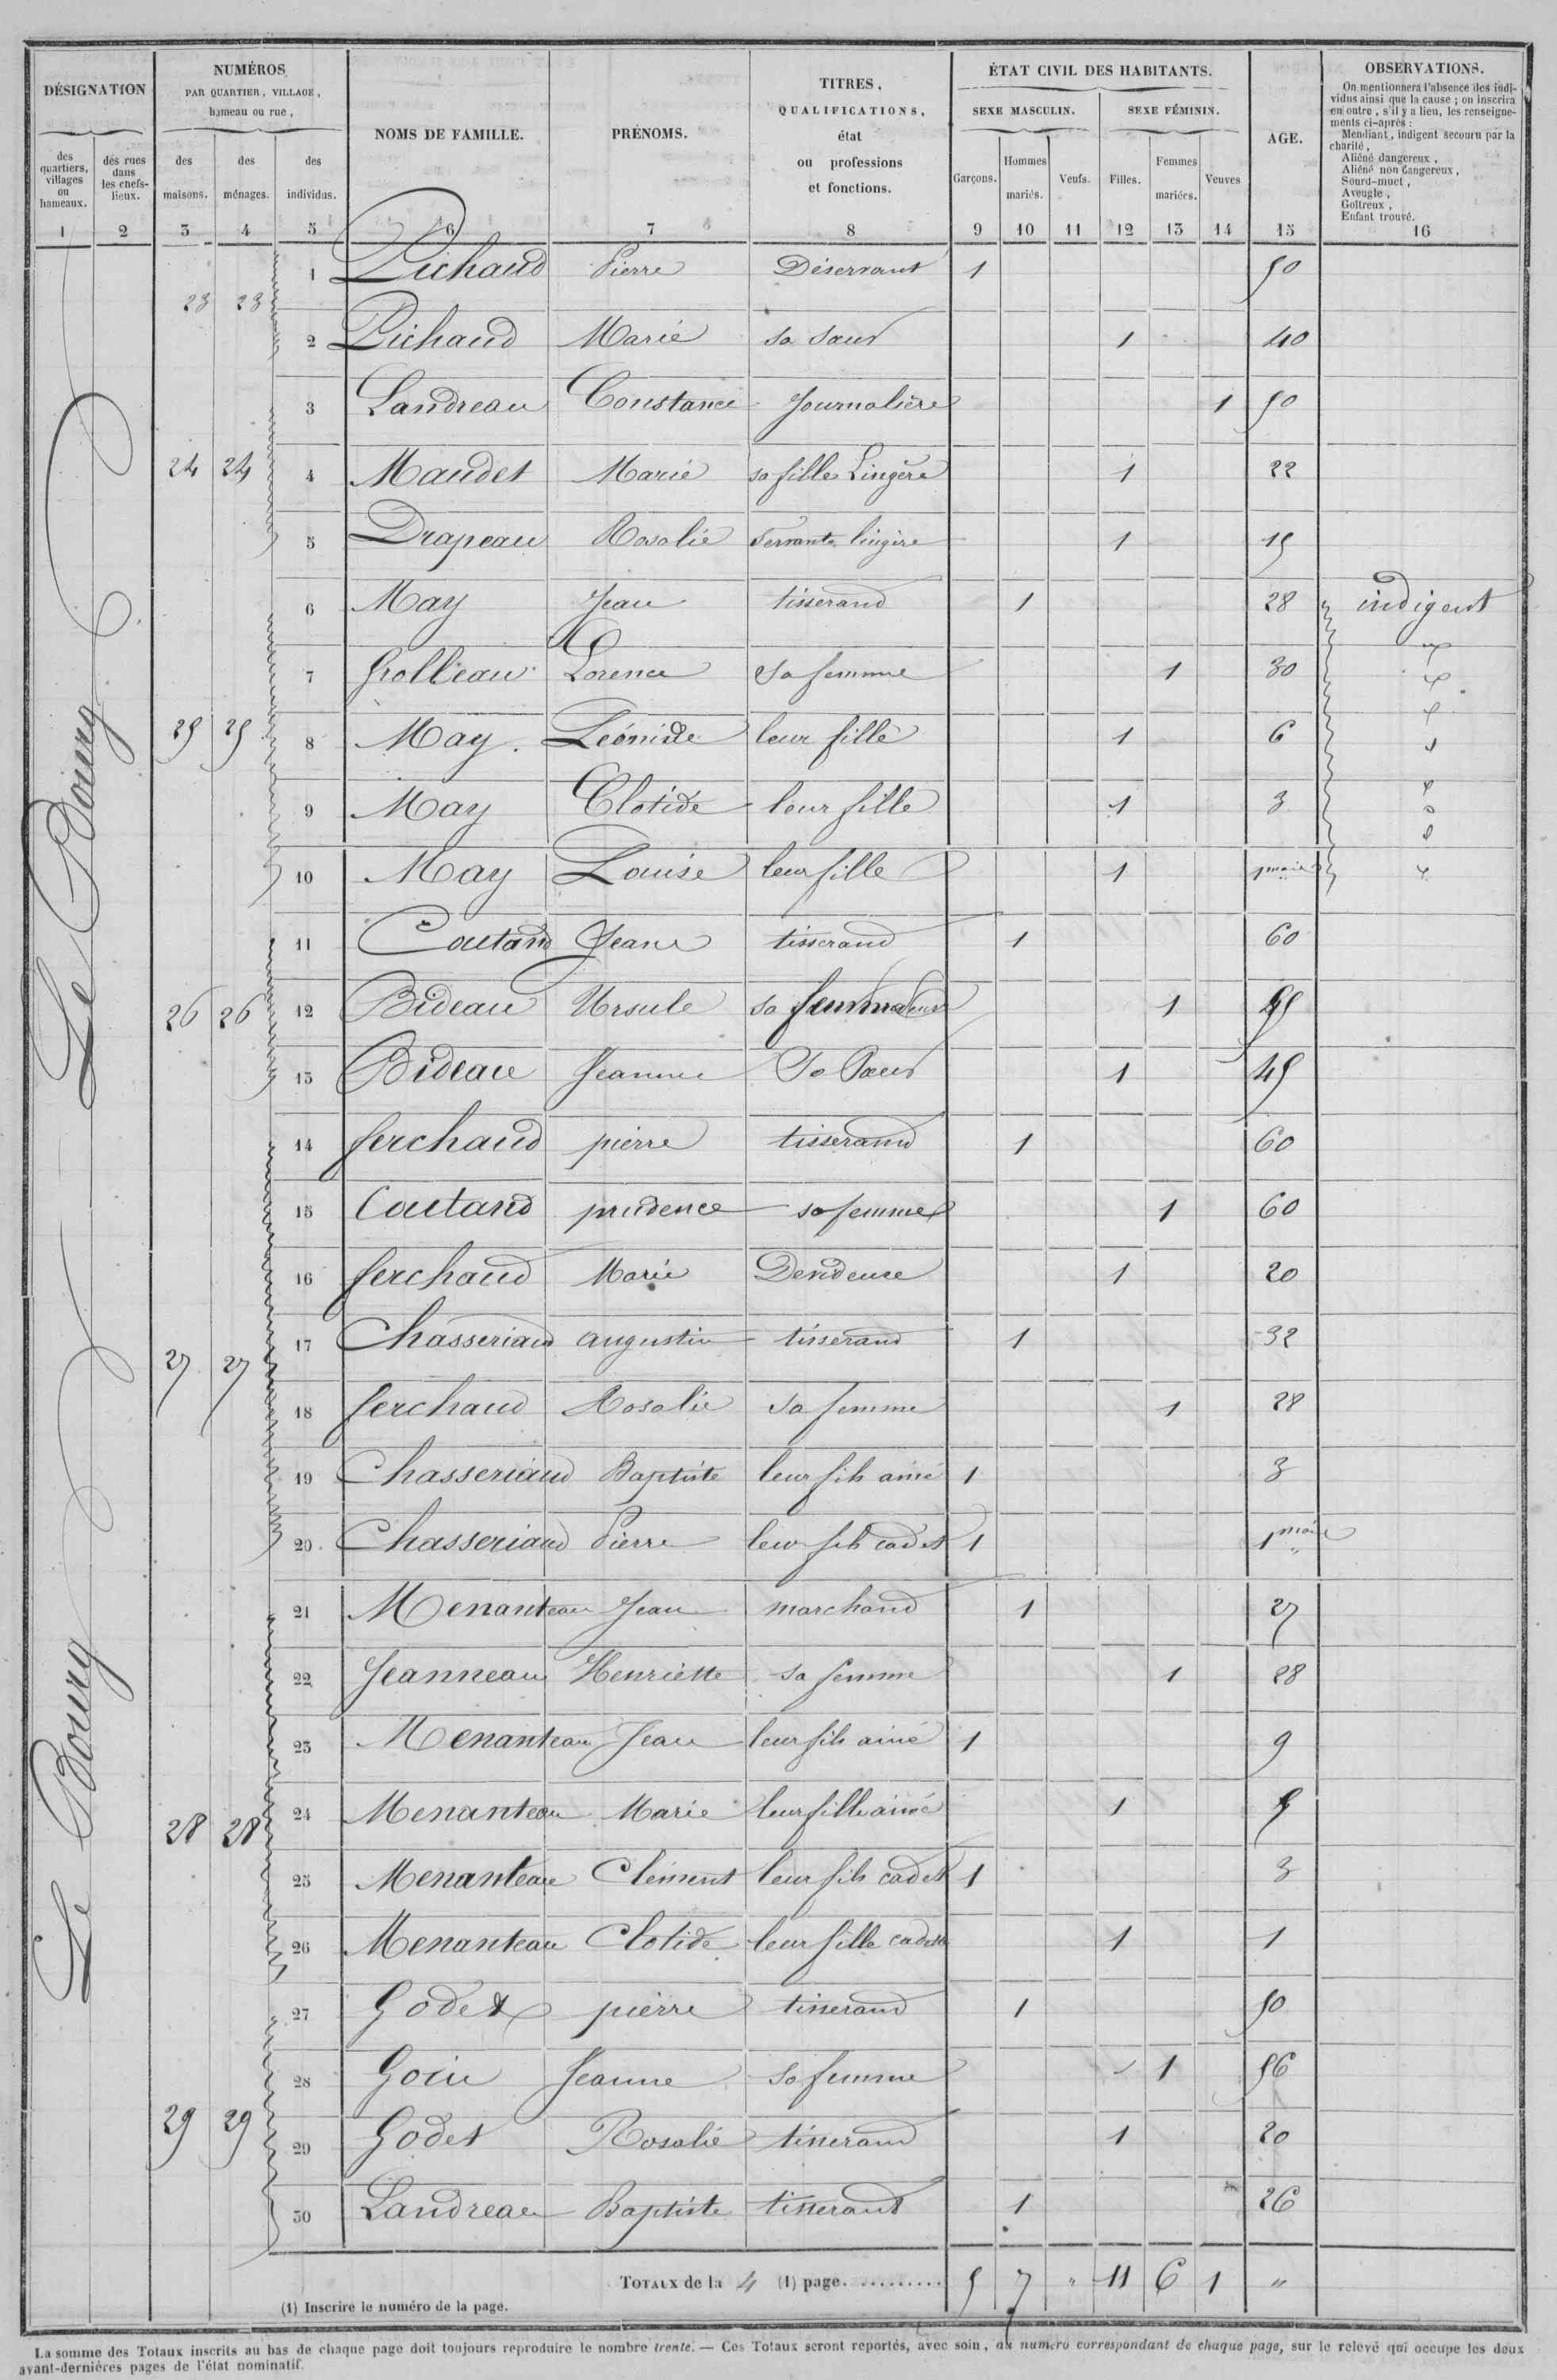 DÉSIGNATION
des quartiers, villages ou hameaux.
des rues dans les chefs-lieux.
NUMÉROS
PAR QUARTIER, VILLAGE,
hameau ou rue,
des maisons.
des ménages.
des individus.
NOMS DE FAMILLE.
PRÉNOMS.
TITRES,
QUALIFICATIONS,
état
ou professions
et fonctions.
ÉTAT CIVIL DES HABITANTS.
SEXE MASCULIN.
SEXE FÉMININ.
Garçons.
Hommes mariés.
Veufs.
Filles.
Femmes mariées.
Veuves
AGE.
OBSERVATIONS.
On mentionnera l'absence des indi-
vidus ainsi que la cause ; on inscrira
en outre, s'il y a lieu, les renseigne-
ments ci-après :
Mendiant, indigent secouru par la
charité,
Aliéné dangereux,
Aliéné non dangereux,
Sourd-muet,
Aveugle,
Goîtreux,
Enfant trouvé.
1 2 3 4 5 6 7 8 9 10 11 12 13 14 15 16
Le Bourg
Le Bourg
1 Pichaud Pierre Déservant 1 50
23 23
2 Pichaud Marie sa sœur 1 40
3 Landreau Constance Journalière 1 50
24 24 4 Maudet Marie sa fille Lingère 1 22
5 Drapeau Rosalie servante lingère 1 15
6 May Jean tisserand 1 28 indigent
7 Grolleau Lorence sa femme 1 30
25 25 8 May Léonide leur fille 1 6
9 May Clotide leur fille 1 3
10 May Louise leur fille 1 1 mois
11 Coutand Jean tisserand 1 60
26 26 12 Bideau Ursule sa femme 1
13 Bideau Jeanne Sa Sœur 1 45
14 ferchaud pierre tisserand 1 60
15 Coutand prudence sa femme 1 60
16 ferchaud Marie Devideuse 1 20
17 Chasseriaud augustin tisserand 1 32
27 27
18 ferchaud Rosalie sa femme 1 28
19 Chasseriaud Baptiste leur fils ainé 1 3
20 Chasseriaud Pierre leur fils cadet 1 1 mois
21 Menanteau Jean marchand 1 27
22 Jeanneau Henriette sa femme 1 28
23 Menanteau Jean leur fils ainé 1 9
24 Menanteau Marie leur fille ainé 1 5
28 28
25 Menanteau Clément leur fils cadet 1 3
26 Menanteau Clotide leur fille cadette 1 1
27 Godet pierre tisserand 1 50
28 Goin Jeanne sa femme 1 56
29 29 29 Godet Rosalie tisserand 1 20
30 Landreau Baptiste tisserand 1 26
TOTAUX de la 4 (1) page. 5 7 " 11 6 1 "
(1) Inscrire le numéro de la page.
La somme des Totaux inscrits au bas de chaque page doit toujours reproduire le nombre trente. — Ces Totaux seront reportés, avec soin, au numéro correspondant de chaque page, sur le relevé qui occupe les deux
avant-dernières pages de l'état nominatif.